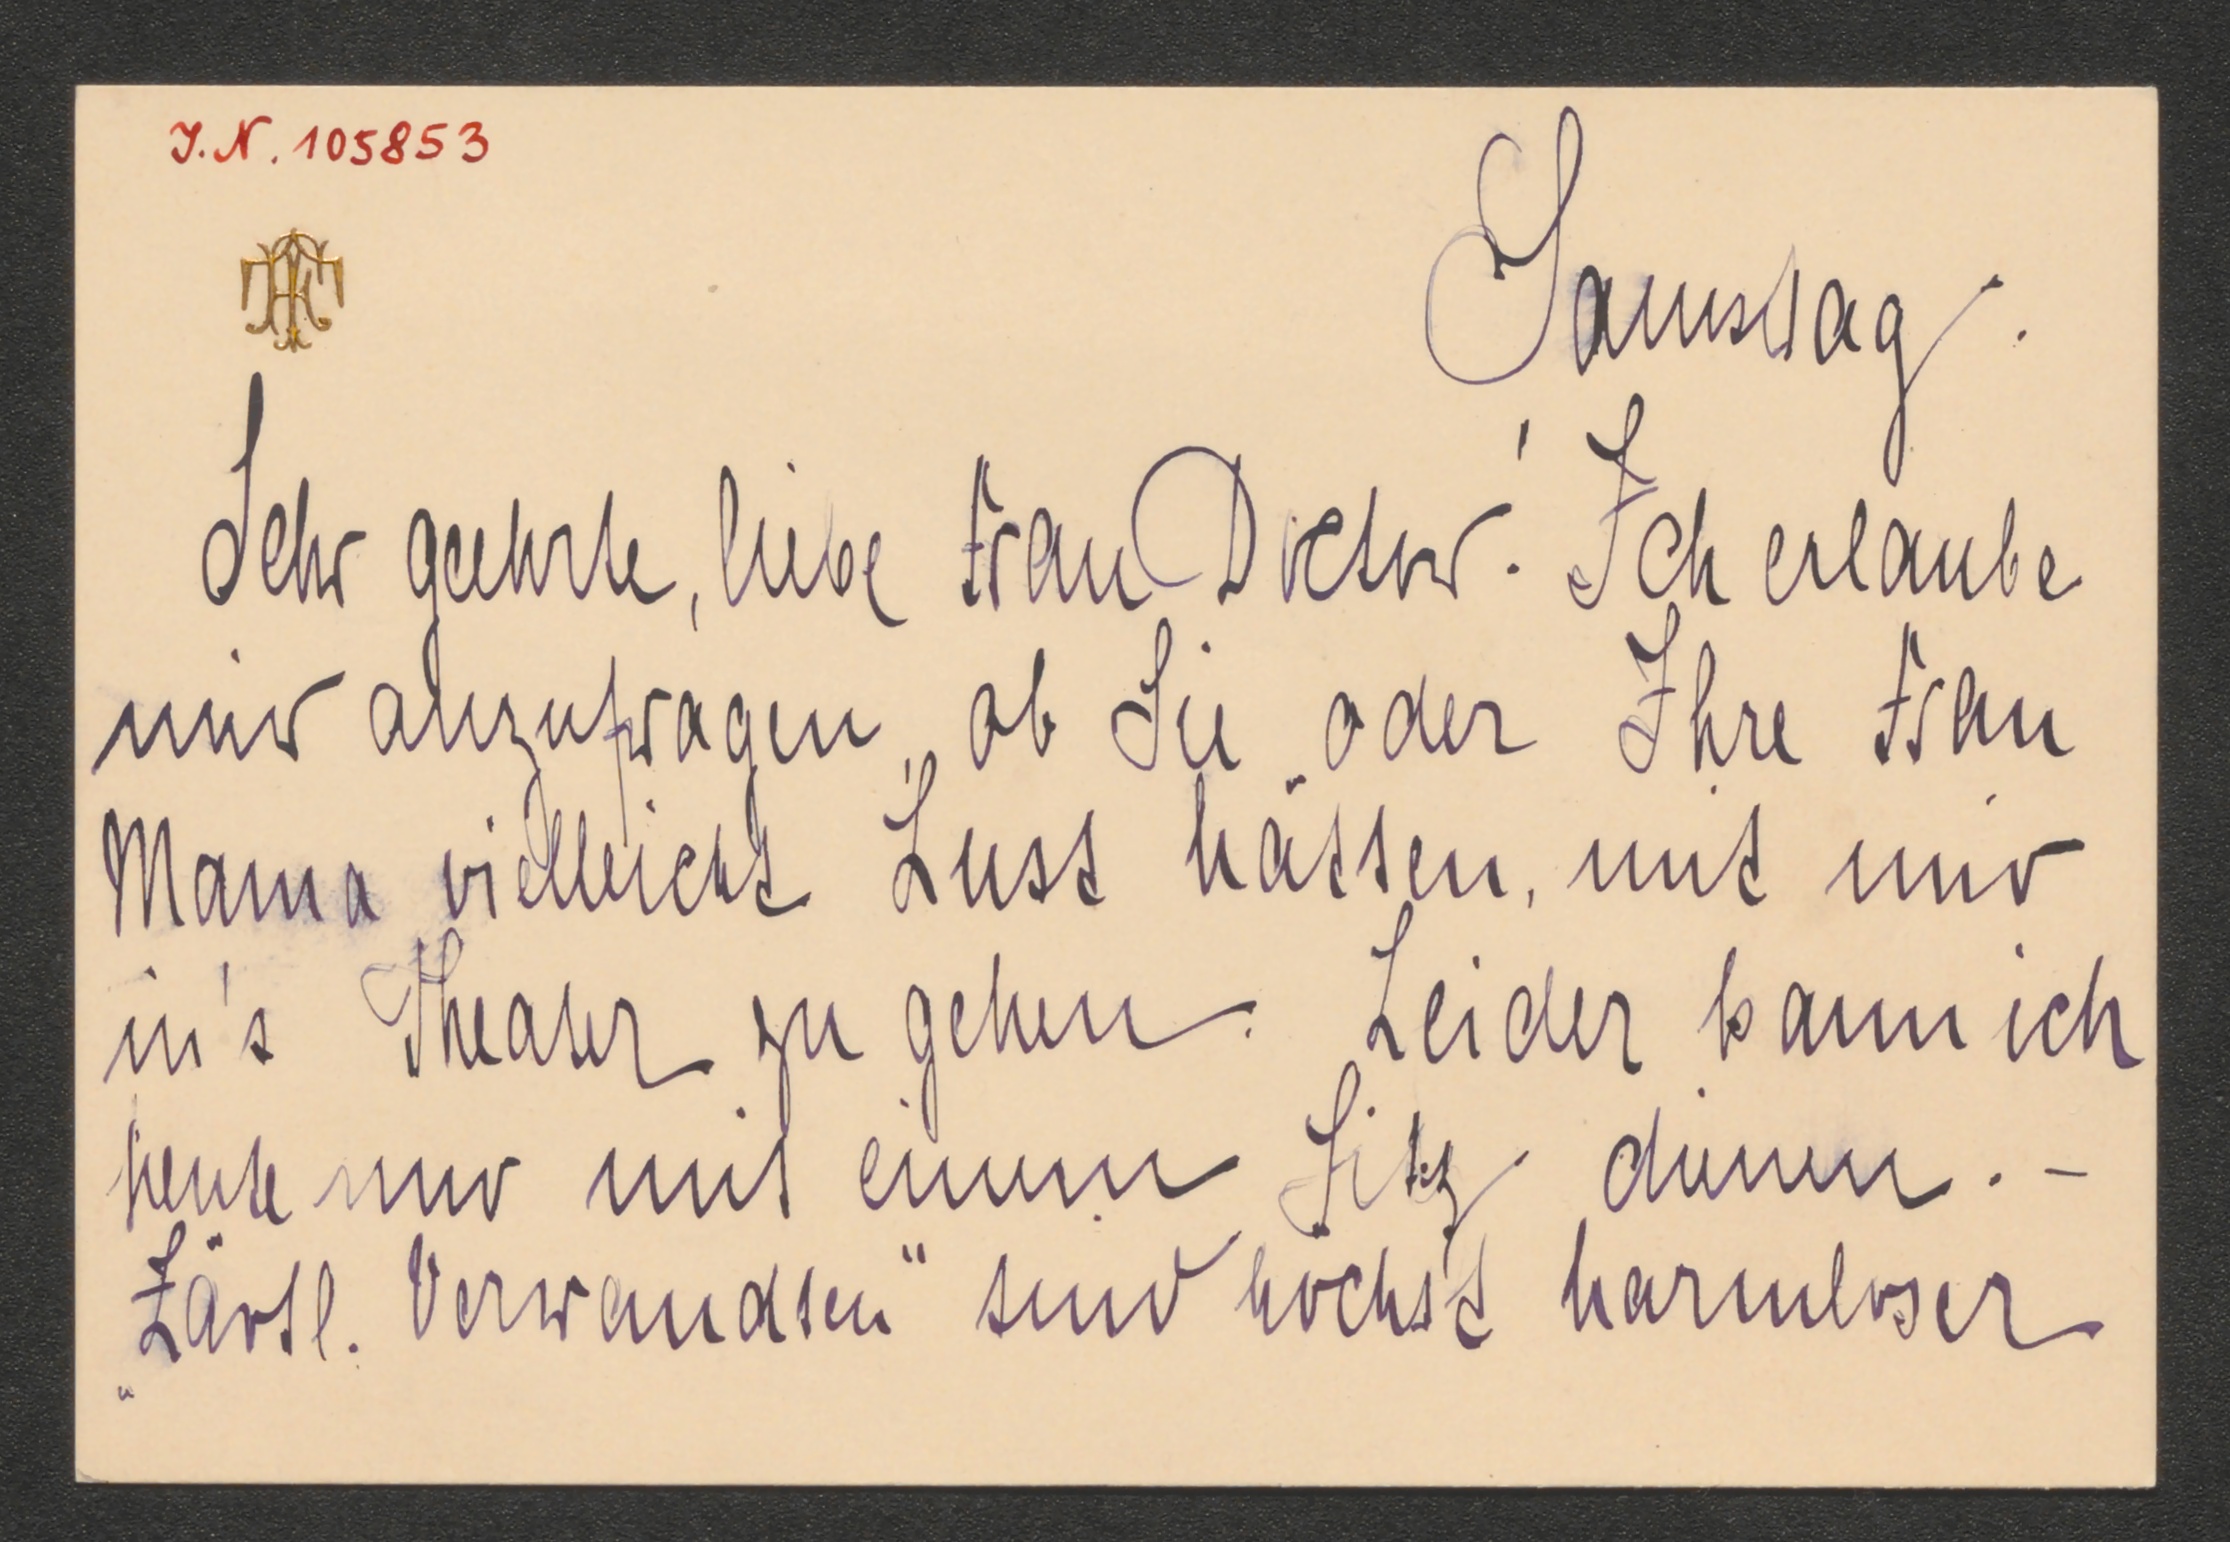 J.N. 105853
Samstag.
Sehr geehrte, liebe Frau Doctor! Ich erlaube
mir anzufragen, ob Sie oder Ihre Frau
Mama vielleicht Lust hätten, mit mir
in's Theater zu gehen. Leider kann ich
heute nur mit einem Sitz dienen. -
„Zärtl. Verwandten" sind höchst harmloser